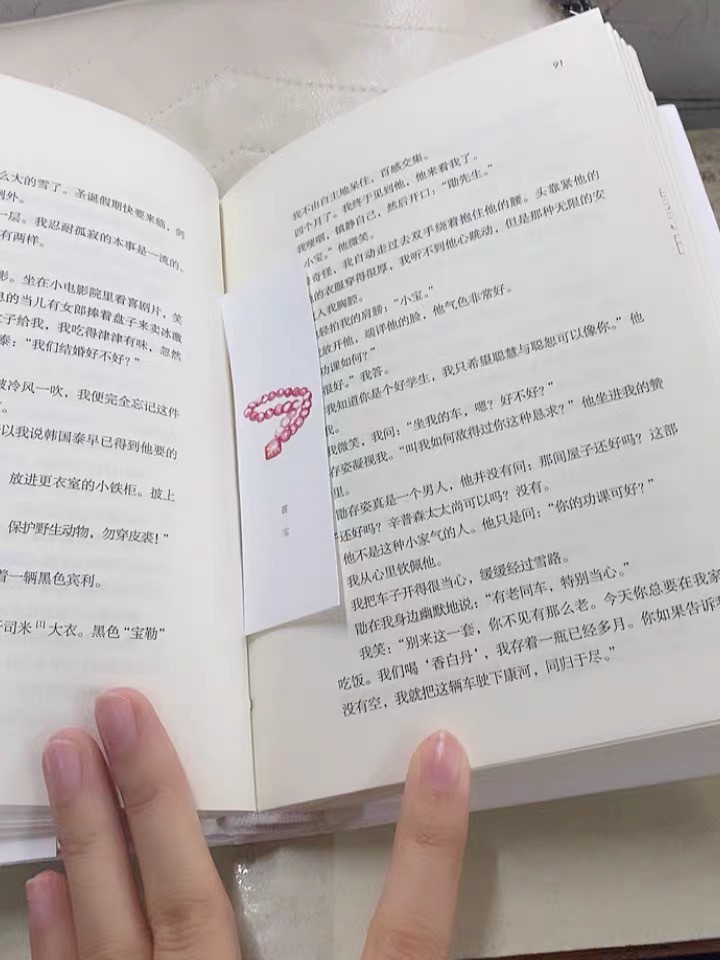 么大的雪了。圣诞假期快要来临，剑
例外。
一层。我忍耐孤寂的本事是一流的。
有两样。
影。坐在小电影院里看喜剧片，笑
息的当儿有女郎捧着盘子来卖冰激
子给我，我吃得津津有味，忽然
泰：“我们结婚好不好？”
被冷风一吹，我便完全忘记这件
以我说韩国泰早已得到他要的
放进更衣室的小铁柜。披上
保护野生动物，勿穿皮裘！”
着一辆黑色宾利。
开司米[1]大衣。黑色“宝勒”
91
我不由自主地呆住，百感交集。
四个月了。我终于见到他，他来看我了。
我哽咽，镇静自己，然后开口：“勖先生。”
小宝。”他微笑。
奇怪，我自动走过去双手绕着抱住他的腰。头靠紧他的
的衣服穿得很厚，我听不到他心跳动，但是那种无限的安
人我胸膛。
轻拍我的肩膀：“小宝。”
放开他，端详他的脸，他气色非常好。
功课如何？”
很好。”我答。
我知道你是个好学生，我只希望聪慧与聪恕可以像你。”他
我。
我微笑，我问：“坐我的车，嗯？好不好？”
存姿凝视我。“叫我如何敌得过你这种恳求？”他坐进我的赞
里。
勖存姿真是一个男人，他并没有问：那间屋子还好吗？这部
还好吗？辛普森太太尚可以吗？没有。
他不是这种小家气的人。他只是问：“你的功课可好？”
我从心里钦佩他。
我把车子开得很当心，缓缓经过雪路。
勖在我身边幽默地说：“有老同车，特别当心。”
我笑：“别来这一套，你不见有那么老。今天你总要在我家
吃饭。我们喝‘香白丹’，我存着一瓶已经多月。你如果告诉我
没有空，我就把这辆车驶下康河，同归于尽。”
喜
宝